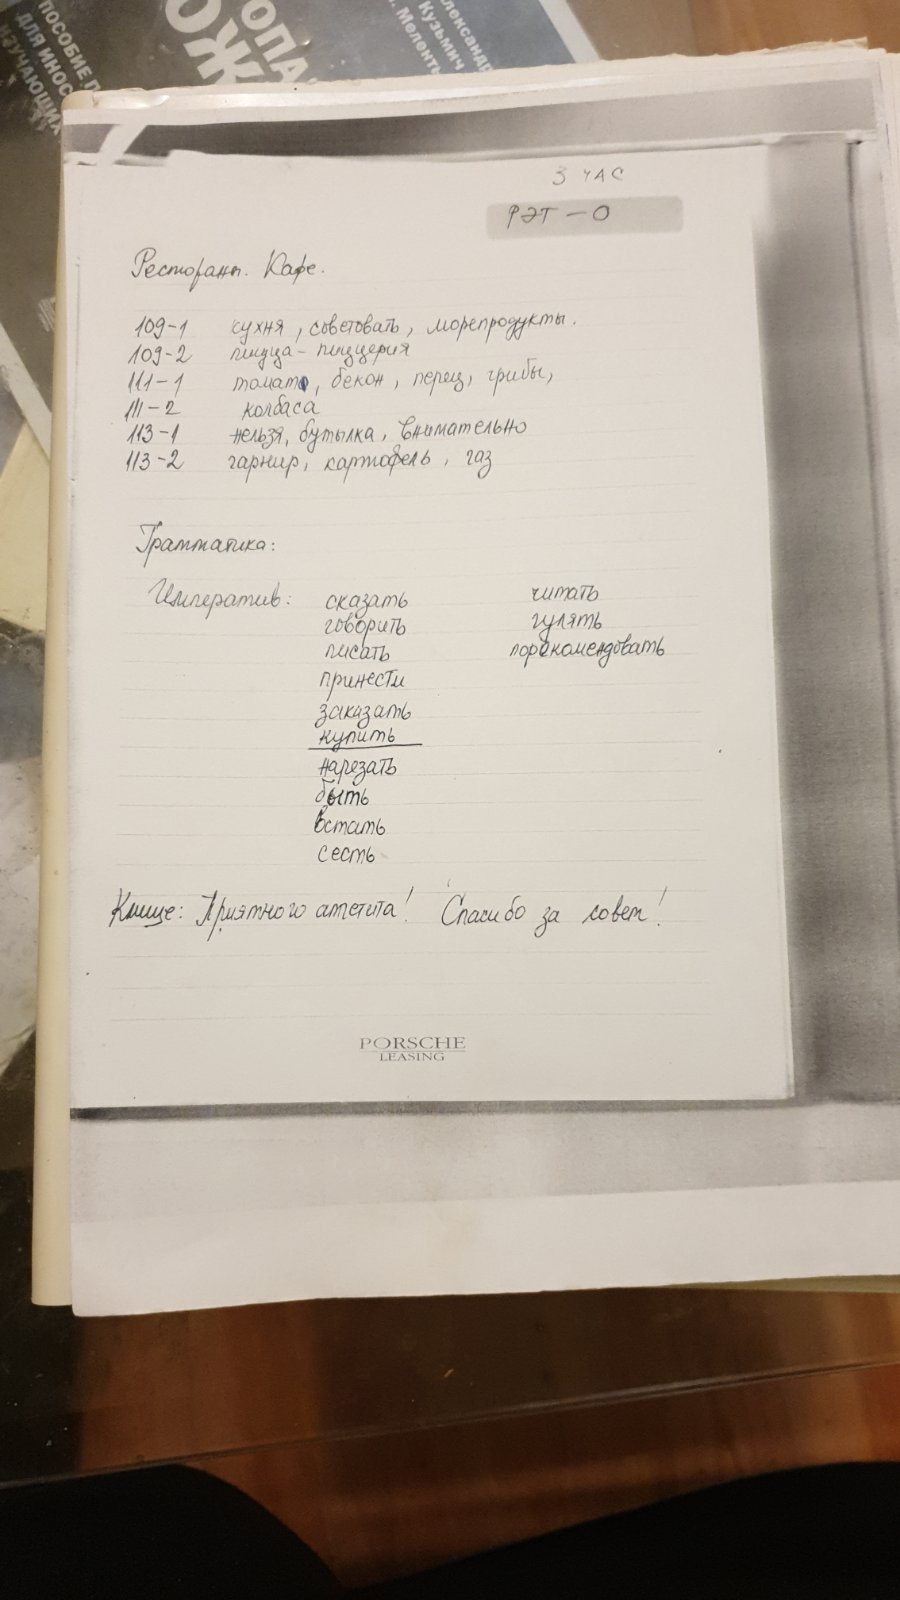 ПОСОБИЕ
ДЛЯ ИНОС
ИЗУЧАЮЩИХ
ОПА
ОЖ
лександр
Кузьмич
Мелент
3 ЧАС
РЭТ - О
Ресторант. Кафе.
109-1 кухня, советовать, морепродукты.
109-2 пицца - пиццерия
111-1 томат, бекон, перец, грибы,
111-2 колбаса
113-1 нельзя, бутылка, внимательно
113-2 гарнир, картофель, газ
Грамматика:
Императив: сказать читать
говорить гулять
писать порекомендовать
принести
заказать
купить
нарезать
быть
встать
сесть
Клише: Приятного аппетита! Спасибо за совет!
PORSCHE
LEASING